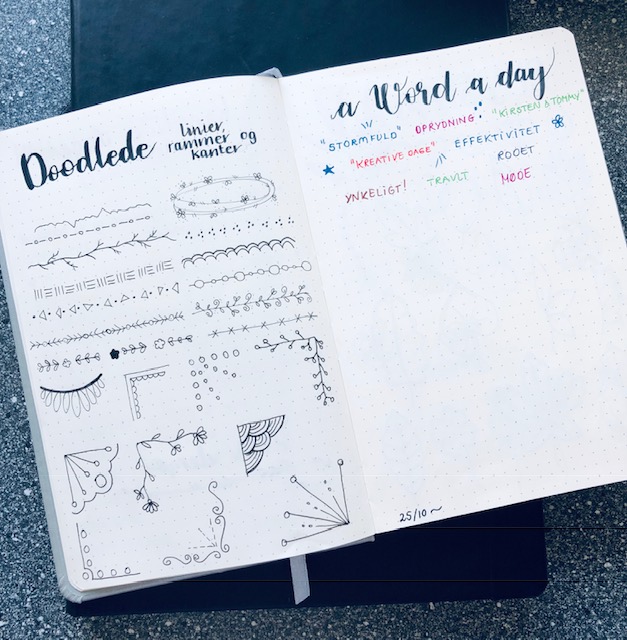 Doodlede
linier,
rammer og
kanter
a Word a day
"STORMFULD" OPRYDNING "KIRSTEN & TOMMY"
"KREATIVE DAGE" EFFEKTIVITET
YNKELIGT! TRAVLT ROOET
MØDE
25/10 ~